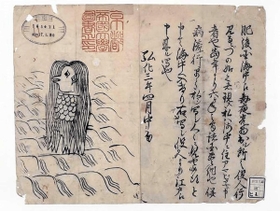 肥後国海中江毎夜光物出ル所之役人行
見るニづの如く者現ス私ハ海中ニ住アマビヱト申
者也当年より六ヶ年之間諸国豊作也併
病流行早々私ヲ写シ人々ニ見セ候得と
申て海中へ入けり右ハ写シ役人より江戸江
申来ル写也
弘化三年四月中旬